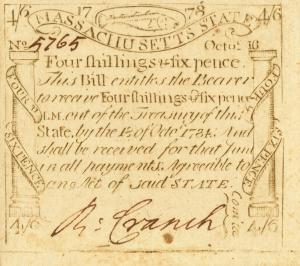 4/6 17 78 4/6
MASSACHUSETTS STATE
No. 5765 Octo. 18
Four shillings & six pence.
This Bill entitles the Bearer
to receive Four shillings & six pence
L.M. out of the Treasury of this
State, by the 1st of Octr. 1784. And
shall be received for that Sum
in all payments, Agreeable to
an Act of said STATE.
Rd. Cranch
Comtee.
FOUR S
SIX PENCE
FOUR S
SIX PENCE
4/6 4/6